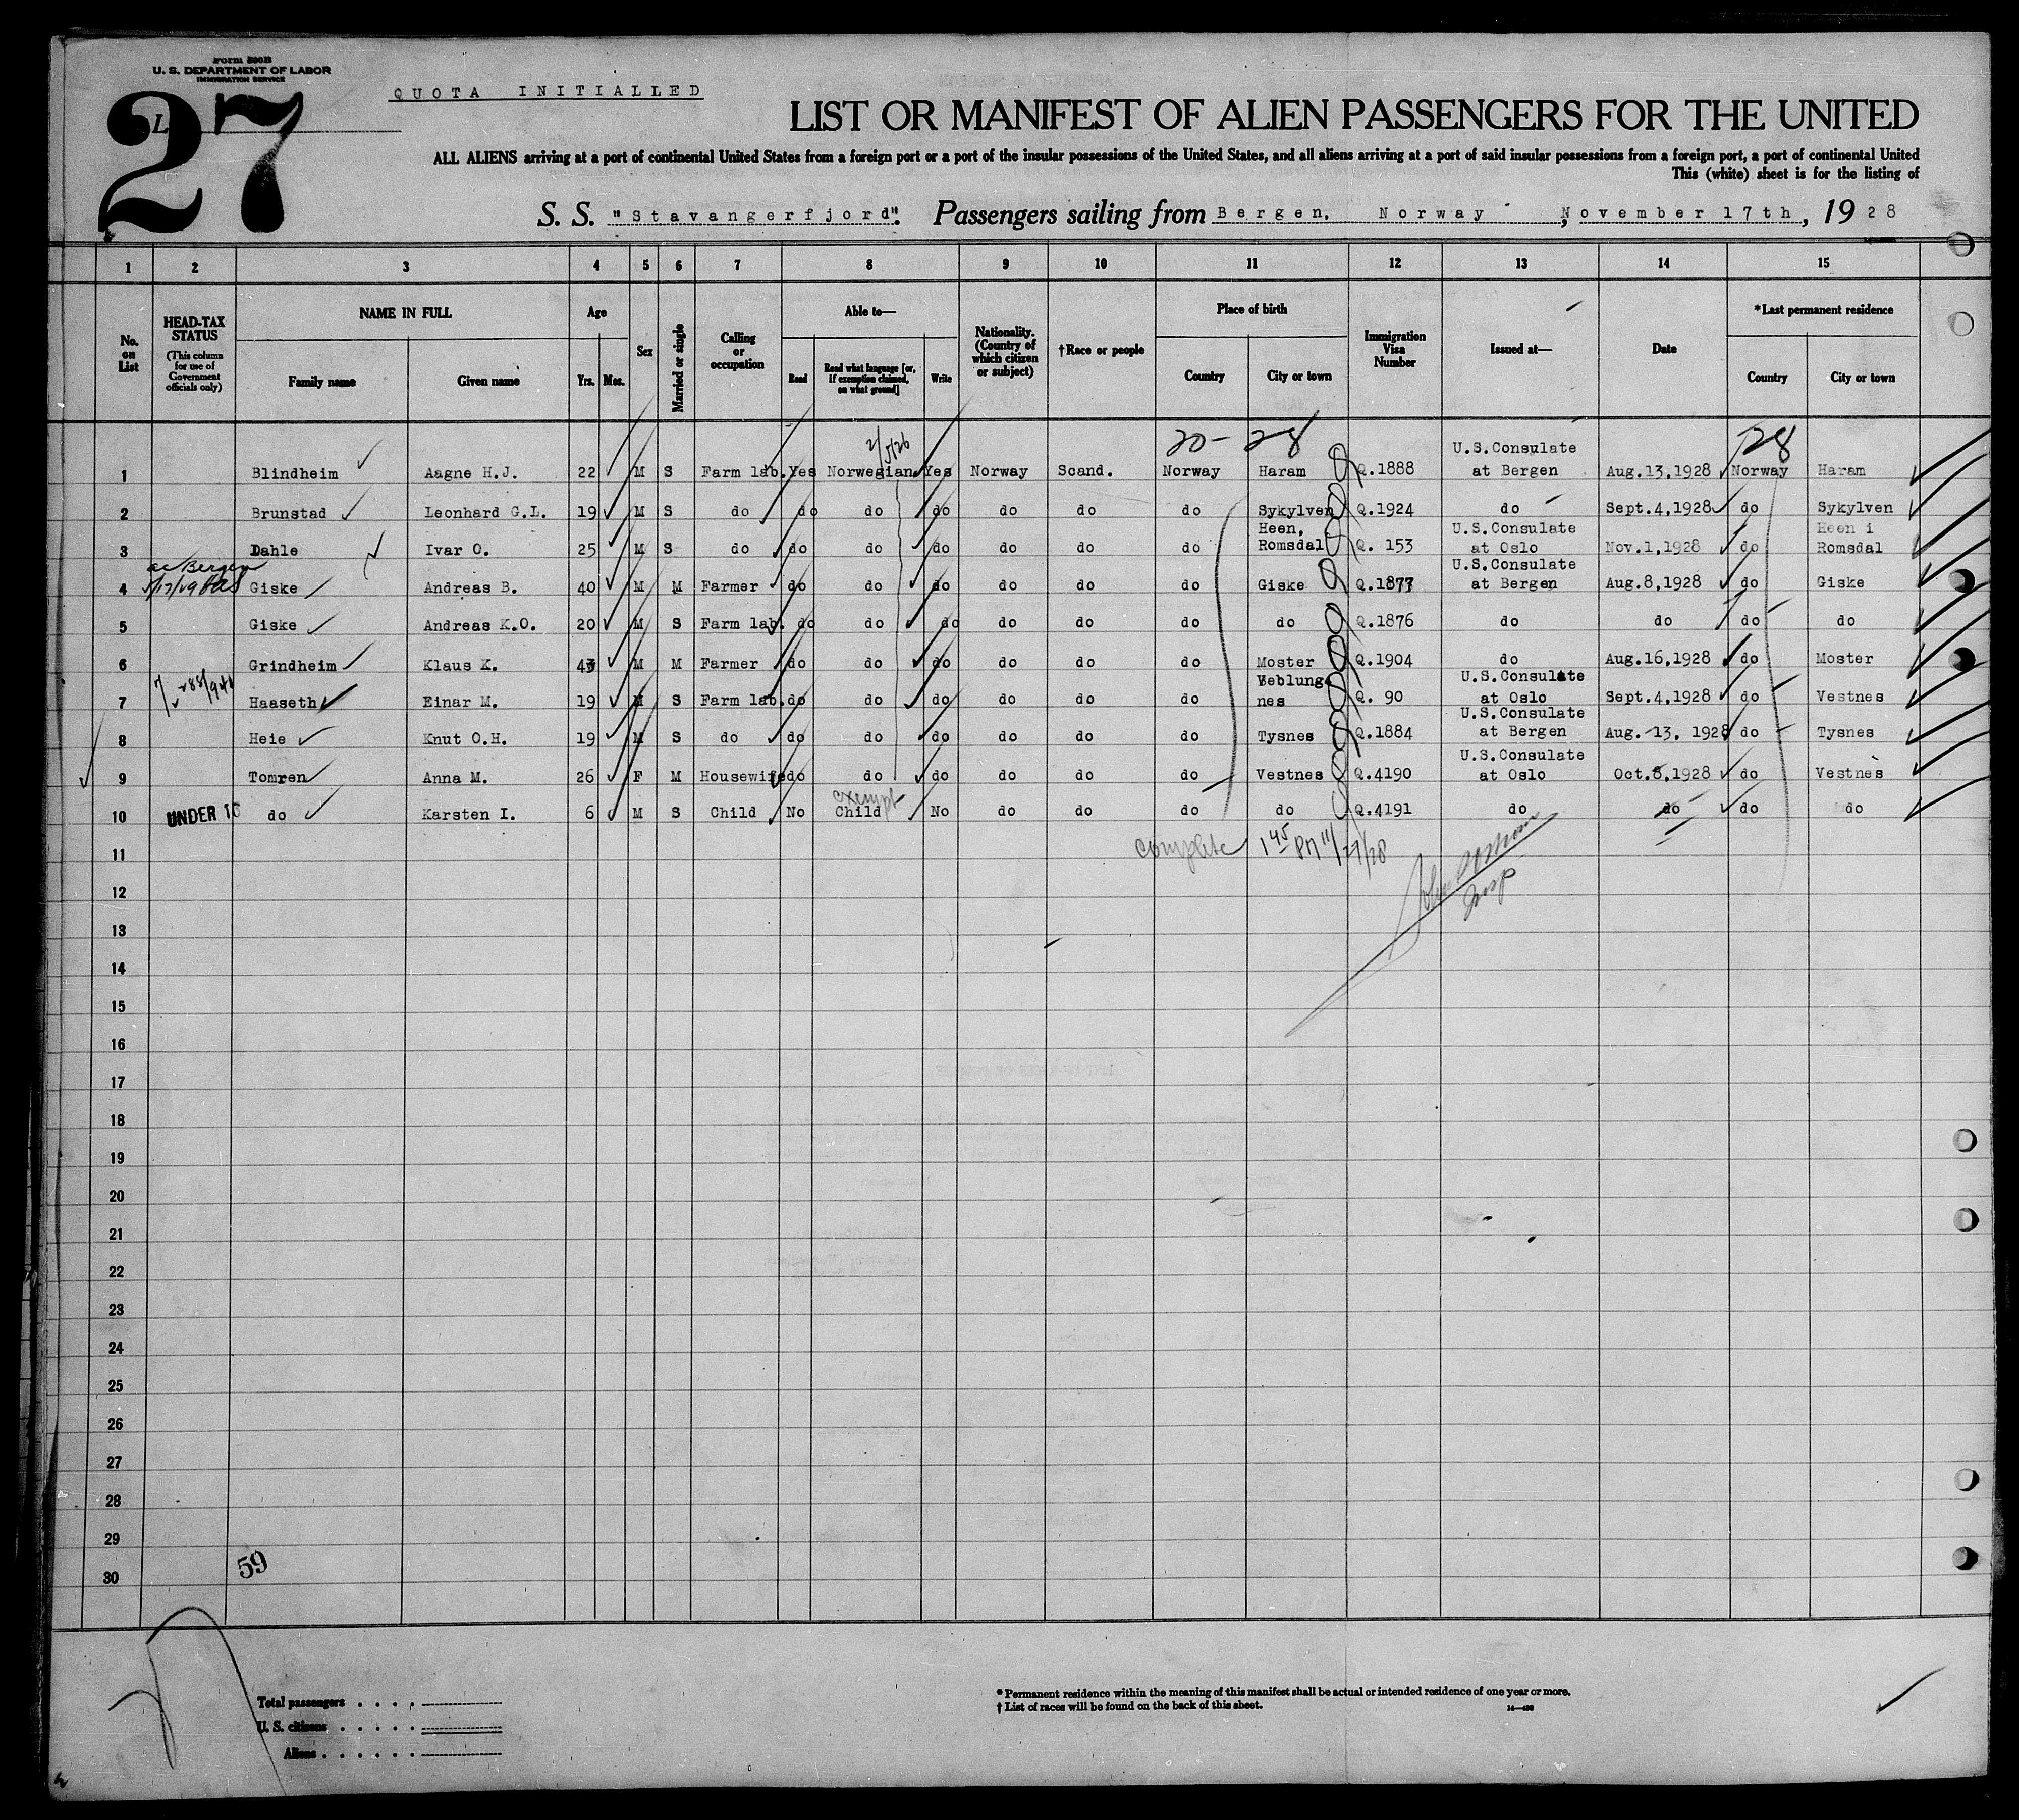 Form 500B
U. S. DEPARTMENT OF LABOR
IMMIGRATION SERVICE
QUOTA INITIALLED
27
LIST OR MANIFEST OF ALIEN PASSENGERS FOR THE UNITED
ALL ALIENS arriving at a port of continental United States from a foreign port or a port of the insular possessions of the United States, and all aliens arriving at a port of said insular possessions from a foreign port, a port of continental United
This (white) sheet is for the listing of
S. S. "Stavangerfjord". Passengers sailing from Bergen, Norway, November 17th, 1928
1 2 3 4 5 6 7 8 9 10 11 12 13 14 15
No. on List
HEAD-TAX STATUS (This column for use of Government officials only)
NAME IN FULL
Family name Given name
Age
Yrs. Mos.
Sex
Married or single
Calling or occupation
Able to—
Read Read what language [or, if exemption claimed, on what ground] Write
Nationality. (Country of which citizen or subject)
†Race or people
Place of birth
Country City or town
Immigration Visa Number
Issued at—
Date
*Last permanent residence
Country City or town
20- 28 28
1 Blindheim Aagne H.J. 22 M S Farm lab. Yes Norwegian Yes Norway Scand. Norway Haram Q.1888 U.S.Consulate at Bergen Aug.13,1928 Norway Haram
2 Brunstad Leonhard G.L. 19 M S do do do do do do do Sykylven Q.1924 do Sept.4,1928 do Sykylven
3 Dahle Ivar O. 25 M S do do do do do do do Heen, Romsdal Q. 153 U.S.Consulate at Oslo Nov.1,1928 do Heen i Romsdal
4 Giske Andreas B. 40 M M Farmer do do do do do do Giske Q.1877 U.S.Consulate at Bergen Aug.8,1928 do Giske
5 Giske Andreas K.O. 20 M S Farm lab. do do do do do do do Q.1876 do do do do
6 Grindheim Klaus K. 43 M M Farmer do do do do do do Moster Q.1904 do Aug.16,1928 do Moster
7 Haaseth Einar M. 19 M S Farm lab. do do do do do do Veblungsnes Q. 90 U.S.Consulate at Oslo Sept.4,1928 do Vestnes
8 Heie Knut O.H. 19 M S do do do do do do do Tysnes Q.1884 U.S.Consulate at Bergen Aug. 13, 1928 do Tysnes
9 Tomren Anna M. 26 F M Housewife do do do do do do Vestnes Q.4190 U.S.Consulate at Oslo Oct.8,1928 do Vestnes
exempt
10 UNDER 16 do Karsten I. 6 M S Child No Child No do do do do Q.4191 do do do do
11 complete 1 45 PM 11/27/28
12 Insp
13
14
15
16
17
18
19
20
21
22
23
24
25
26
27
28
29
30
59
Total passengers . . . .
U. S. citizens . . . . .
Aliens . . . . . .
* Permanent residence within the meaning of this manifest shall be actual or intended residence of one year or more.
† List of races will be found on the back of this sheet.